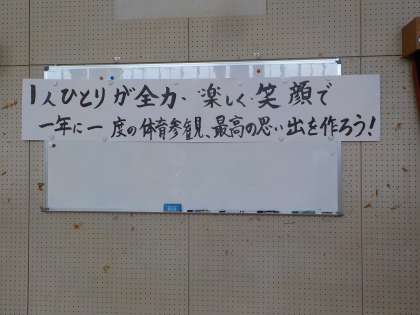 1人ひとりが全力・楽しく・笑顔で
一年に一度の体育参観、最高の思い出を作ろう!